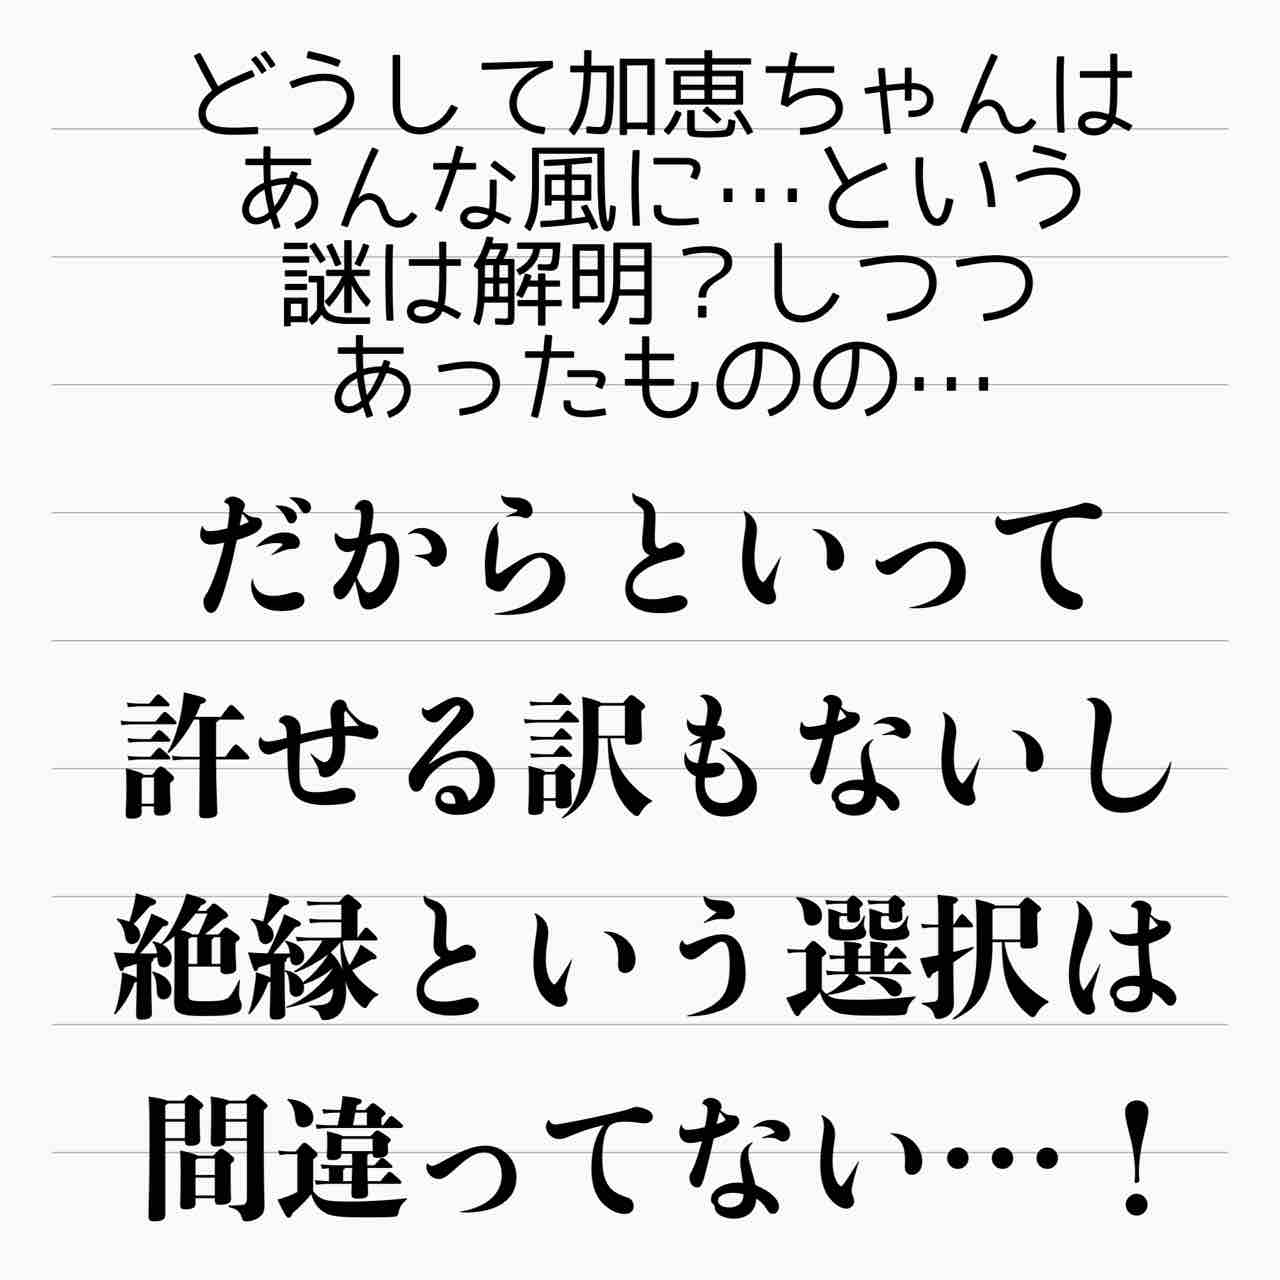 どうして加恵ちゃんは
あんな風に…という
謎は解明？しつつ
あったものの…
だからといって
許せる訳もないし
絶縁という選択は
間違ってない…！